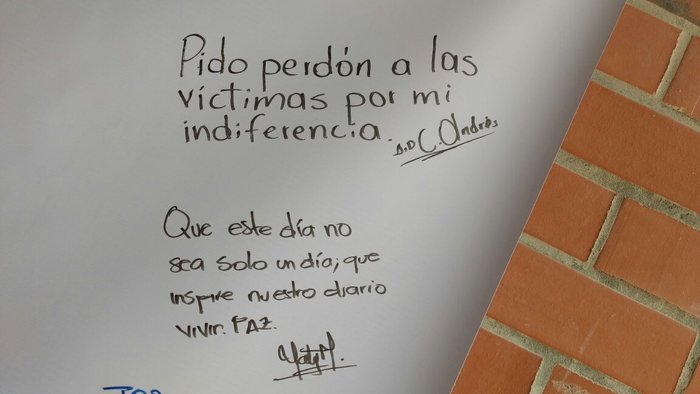 Pido perdón a las
víctimas por mi
indiferencia.
C. Andrés
Que este día no
sea solo un día; que
inspire nuestro diario
vivir. PAZ.